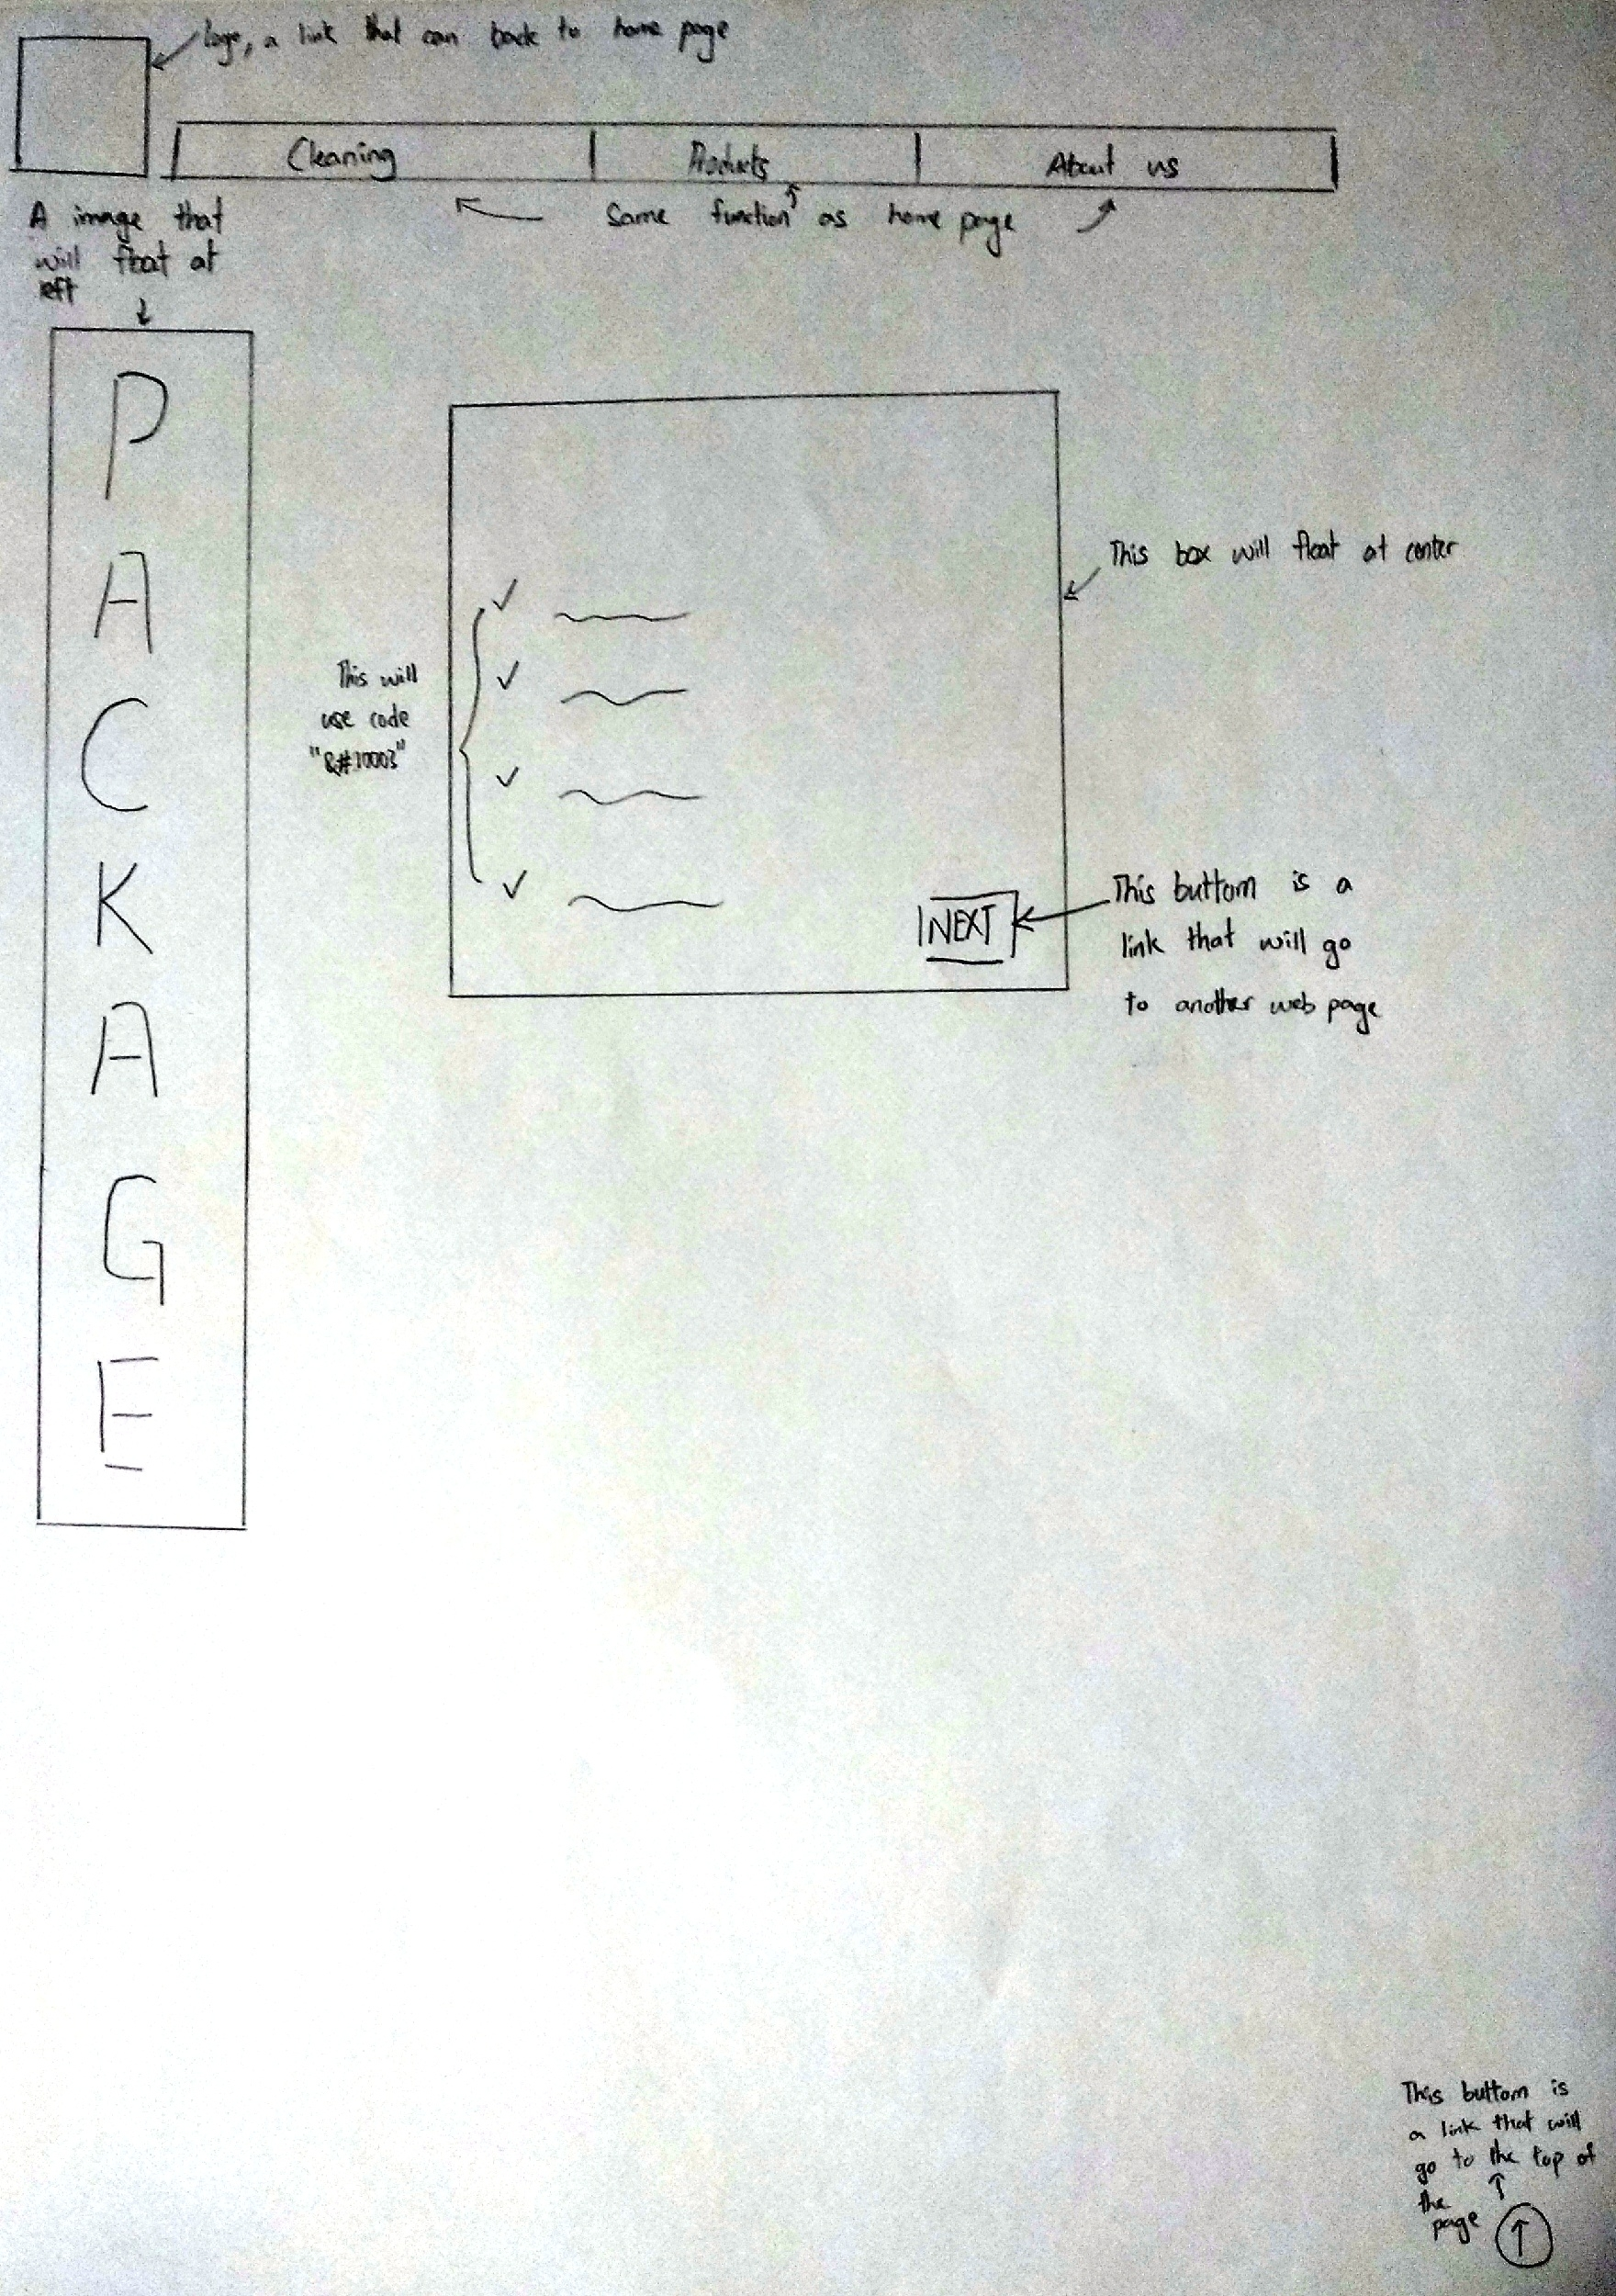 logo, a link that can back to home page
Cleaning Products About us
Same function as home page
A image that
will float at
left
P
A
C
K
A
G
E
This box will float at center
This will
use code
"&#10003"
NEXT
This buttom is a
link that will go
to another web page
This buttom is
a link that will
go to the top of
the
page